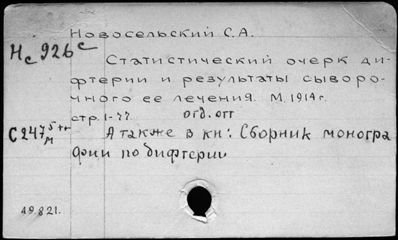 Новосельский С.А.
Нс 926 с
Статистический очерк ди-
фтерии и результаты сыворо-
чного ее лечения. М. 1914 г.
стр. 1-77 отд. отт
С 247
А также в кн: Сборник моногра
фии по дифтерии
49.821.